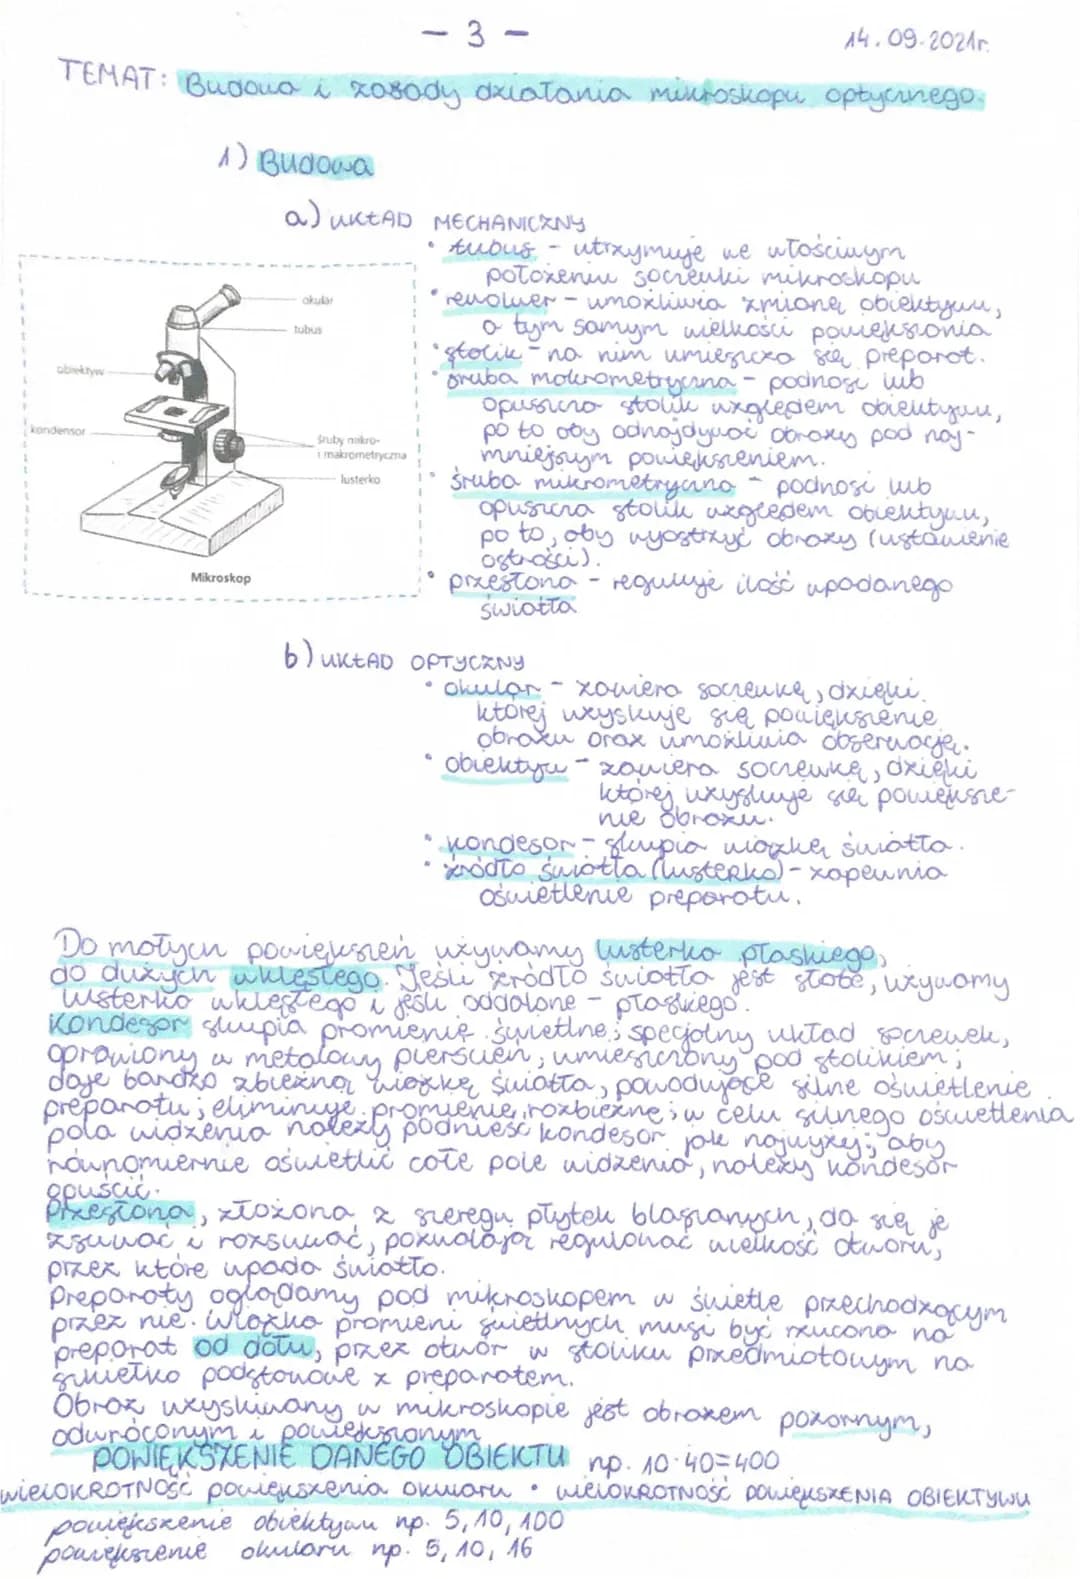 - 3 -
14.09.2021r.
TEMAT: Budowa i zasady działania mikroskopu optycznego.
1) Budowa
a) UKŁAD MECHANICZNY
• tubus - utrzymuje we właściwym
położeniu soczewki mikroskopu
• rewolwer - umożliwia zmianę obiektywu,
a tym samym wielkości powiększenia
• stolik - na nim umieszcza się preparat.
• śruba makrometryczna - podnosi lub
opuszcza stolik względem obiektywu,
po to aby odnajdywać obrazy pod naj-
mniejszym powiększeniem.
• śruba mikrometryczna - podnosi lub
opuszcza stolik względem obiektywu,
po to, aby wyostrzyć obrazy (ustawienie
ostrości).
• przesłona - reguluje ilość wpadanego
światła
okular
tubus
obiektyw
kondensor
śruby mikro-
i makrometryczna
lusterko
Mikroskop
b) UKŁAD OPTYCZNY
• okular - zawiera soczewkę, dzięki
której uzyskuje się powiększenie
obrazu oraz umożliwia obserwację.
• obiektyw - zawiera soczewkę, dzięki
której uzyskuje się powiększe-
nie obrazu.
• kondesor - skupia wiązkę światła.
• źródło światła (lusterko) - zapewnia
oświetlenie preparatu.
Do małych powiększeń używamy lusterka płaskiego,
do dużych wklęsłego. Jeśli źródło światła jest słabe, używamy
lusterko wklęsłego i jeśli oddalone - płaskiego.
Kondesor skupia promienie świetlne; specjalny układ soczewek,
oprawiony w metalowy pierścień, umieszczony pod stolikiem;
daje bardzo zbieżną wiązkę światła, powodujące silne oświetlenie
preparatu; eliminuje promienie rozbieżne; w celu silnego oświetlenia
pola widzenia należy podnieść kondesor jak najwyżej; aby
równomiernie oświetlić całe pole widzenia, należy kondesor
opuścić.
Przesłona, złożona z szeregu płytek blaszanych, da się je
zsuwać i rozsuwać, pozwalają regulować wielkość otworu,
przez które wpada światło.
Preparaty oglądamy pod mikroskopem w świetle przechodzącym
przez nie. Wiązka promieni świetlnych musi być rzucona na
preparat od dołu, przez otwór w stoliku przedmiotowym na
szkiełko podstawowe z preparatem.
Obraz uzyskiwany w mikroskopie jest obrazem pozornym,
odwróconym i powiększonym
POWIĘKSZENIE DANEGO OBIEKTU np. 10·40=400
WIELOKROTNOŚĆ powiększenia okularu • WIELOKROTNOŚĆ POWIĘKSZENIA OBIEKTYWU
powiększenie obiektywu np. 5, 10, 100
powiększenie okularu np. 5, 10, 16